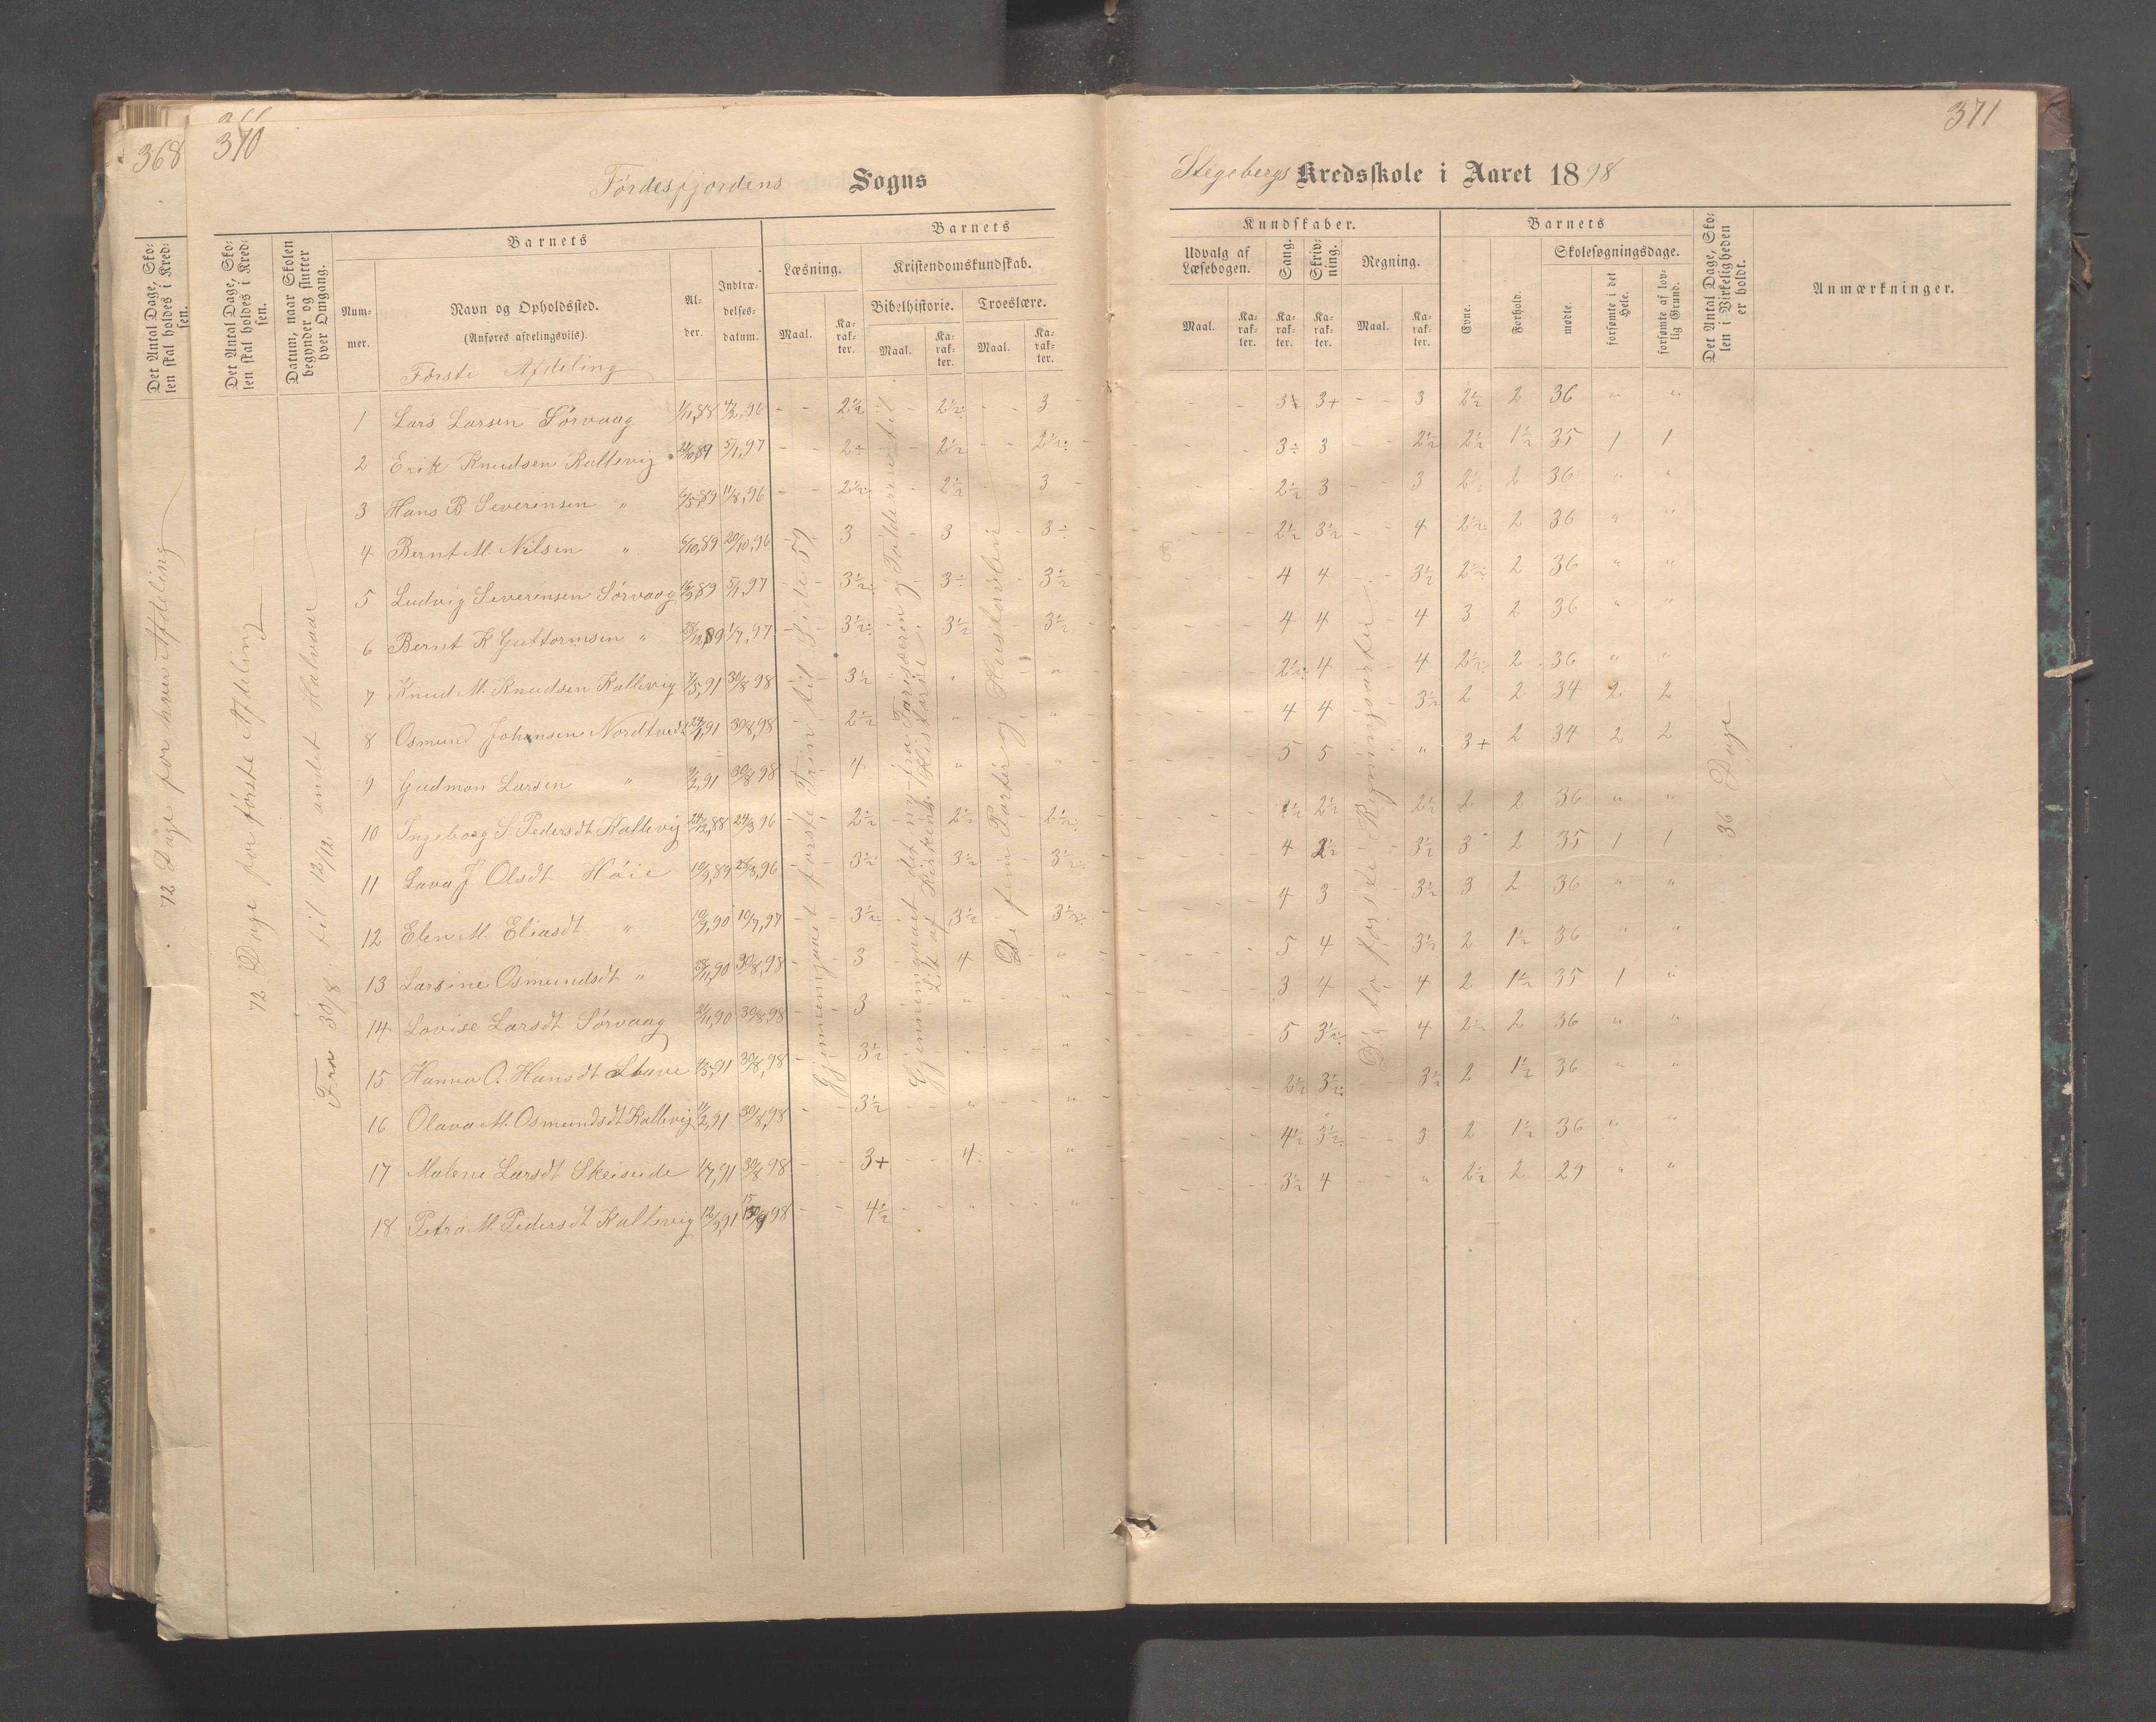 368
370
Førdesfjordens Sogns
Det Antal Dage, Skolen skal holdes i Kredsen.
Det Antal Dage, Skolen skal holdes i Kredsen.
Datum, naar Skolen begynder og slutter hver Omgang.
Barnets
Nummer.
Navn og Opholdssted.
(Anføres afdelingsviis).
Alder.
Indtrædelsesdatum.
Barnets
Læsning.
Maal.
Karakter.
Kristendomskundskab.
Bibelhistorie.
Maal.
Karakter.
Troeslære.
Maal.
Karakter.
Første Afdeling
72 Dage for hver Afdeling
72 Dage for første Afdeling
Fra 30/8 til 12/12 andet Halvaar
1 Lars Larsen Sørvaag 1/11,88 4/2,96 2½ 2½: 3
2 Erik Knudsen Kallevig 5/1,97 2÷ 2½ 2½:
3 Hans B Severinsen " 11/8,96 2½ 2½ 3
4 Bernt M. Nilsen " 6/10,89 20/10,96 3 3 3÷
5 Ludvig Severinsen Sørvaag 5/1,97 3½: 3÷ 3½
6 Bernt K Guttormsen " 1/7,97 3½: 3½ 3½
7 Knud M. Knudsen Kallevig 30/8 98 3½ " "
8 Osmund Johansen Nordtvedt 30/8,98 2½ " "
9 Gudmon Larsen " 30/8 98 4 " "
10 Ingeborg S. Pedersdt Kallevig 24/3 96 2½ 2½ 2½:
11 Lava J Olsdt Høie 3½ 3½ 3½:
12 Elen M. Eliasdt " 10/7,97 3½: 3½ 3½:
13 Larsine Osmundsdt " 30/8,98 3 4 "
14 Lovise Larsdt Sørvaag 30/8 98 3 " "
15 Hanna O. Hansdt Stave 30/8,98 3½ " "
16 Olava M. Osmundsdt Kallevig 11/2,91 30/8,98 3½ " "
17 Malene Larsdt Skeiseide 1/7,91 30/8 98 3+ 4 "
18 Petra M. Pedersdt Kallevig 98 4½ " "
Gjennemgaaet første Trin til Side 59
Gjennemgaaet det ny fra Farisæeren og Tolderen til
Lidt af Kirkens Historie
De fem Parter og Hustavlen
371
Stegebergs Kredsskole i Aaret 1898
Kundskaber.
Udvalg af Læsebogen.
Maal.
Karakter.
Sang.
Karakter.
Skrivning.
Karakter.
Regning.
Maal.
Karakter.
Barnets
Evne.
Forhold.
Skolesøgningsdage.
mødte.
forsømte i det Hele.
forsømte af lovlig Grund.
Det Antal Dage, Skolen i Virkeligheden er holdt.
Anmærkninger.
3+ 3 2½ 2 36 " "
3÷ 3 2½ 2½ 1½ 35 1 1
2½ 3 3 2½ 2 36 " "
2½ 3½ 4 2½ 2 36 " "
4 4 3½ 2½ 2 36 " "
4 4 4 3 2 36 " "
2½: 4 4 2½: 2 36 " "
4 4 3½ 2 2 34 2 2
5 5 " 3+ 2 34 2 2
2½ 2½ 2 2 36 " "
4 2½ 3½ 3 2 35 1 1
4 3 3½ 3 2 36 " "
5 4 3½ 2 1½ 36 " "
3 4 4 2 1½ 35 1 "
5 3½: 4 2½ 2 36 " "
2½ 3½: 3½ 2 1½ 36 " "
4½ 3½: 3 2 1½ 36 " "
3½ 4 " 2½ 2 29 " "
De to første Regningsarter
36 Dage